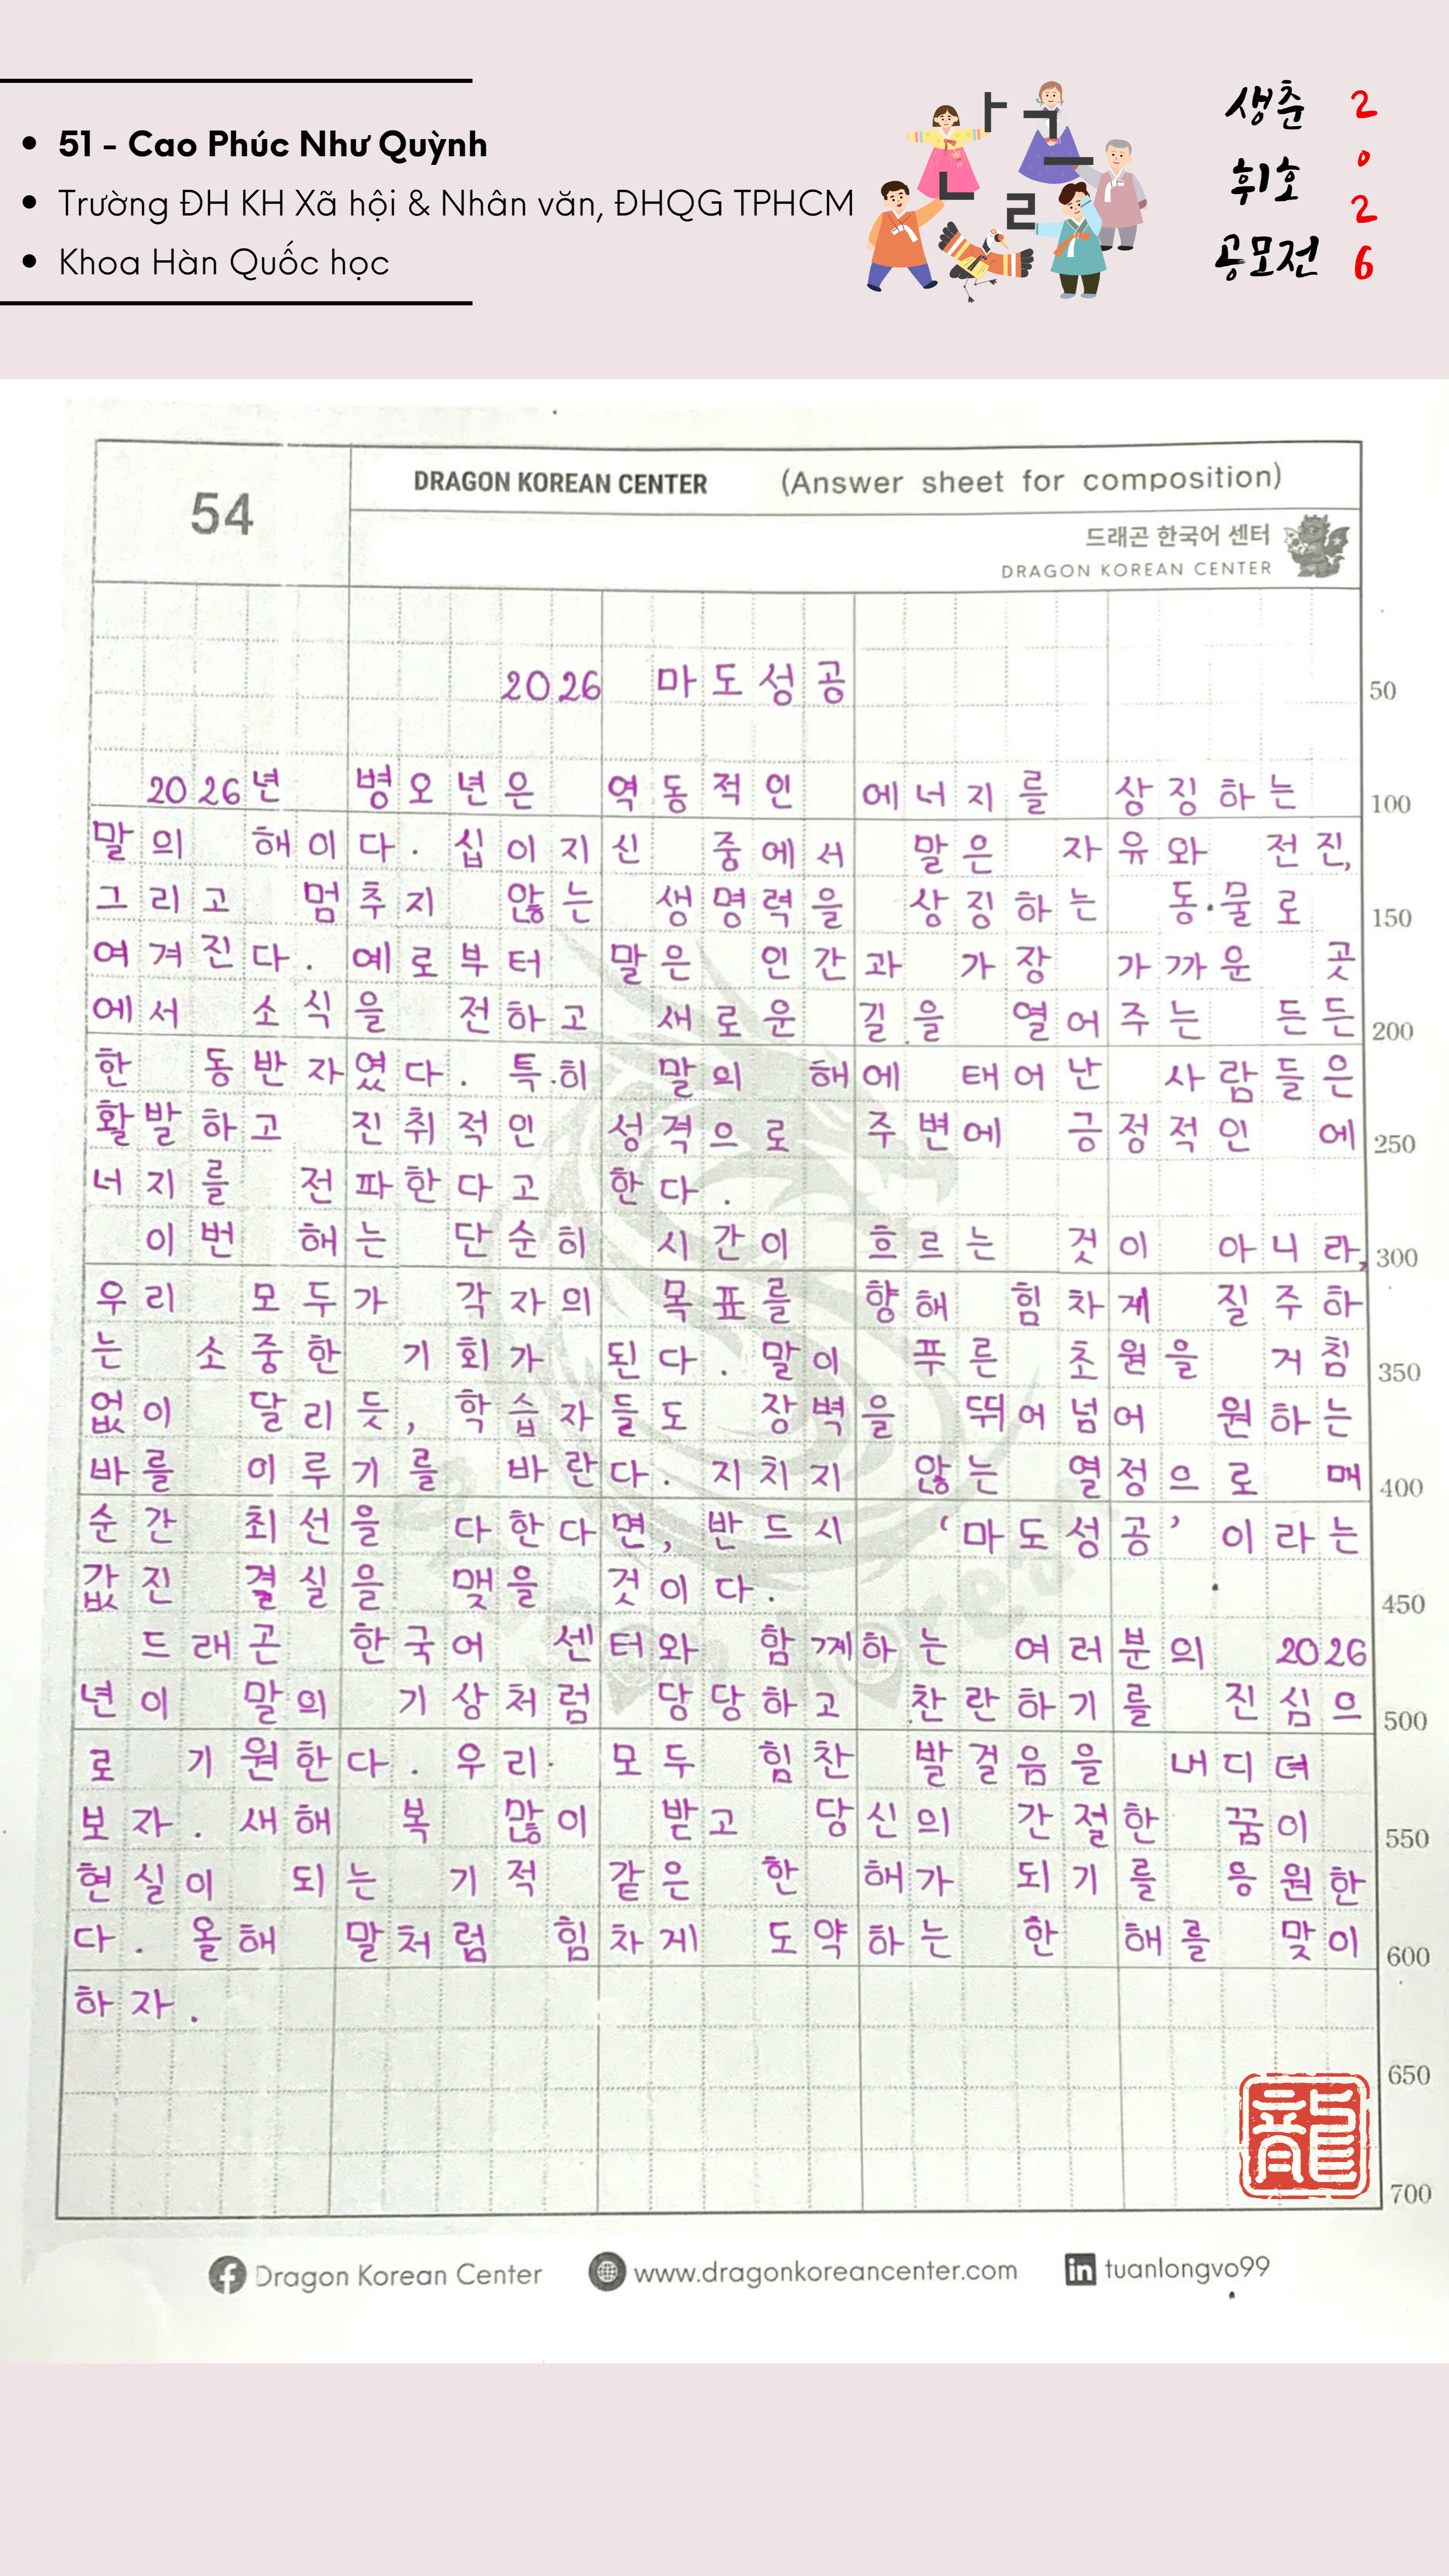 51 - Cao Phúc Như Quỳnh
Trường ĐH KH Xã hội & Nhân văn, ĐHQG TPHCM
Khoa Hàn Quốc học
ㅏ ㄱ ㅡ ㄴ ㄹ
생춘 2
휘호 0
2
공모전 6
54
DRAGON KOREAN CENTER (Answer sheet for composition)
드래곤 한국어 센터
DRAGON KOREAN CENTER
2026 마도성공
50
2026년 병오년은 역동적인 에너지를 상징하는
100
말의 해이다. 십이지신 중에서 말은 자유와 전진,
그리고 멈추지 않는 생명력을 상징하는 동물로
150
여겨진다. 예로부터 말은 인간과 가장 가까운 곳
에서 소식을 전하고 새로운 길을 열어주는 든든
200
한 동반자였다. 특히 말의 해에 태어난 사람들은
활발하고 진취적인 성격으로 주변에 긍정적인 에
250
너지를 전파한다고 한다.
이번 해는 단순히 시간이 흐르는 것이 아니라,
300
우리 모두가 각자의 목표를 향해 힘차게 질주하
는 소중한 기회가 된다. 말이 푸른 초원을 거침
350
없이 달리듯, 학습자들도 장벽을 뛰어넘어 원하는
바를 이루기를 바란다. 지치지 않는 열정으로 매
400
순간 최선을 다한다면, 반드시 ‘마도성공’이라는
값진 결실을 맺을 것이다.
450
드래곤 한국어 센터와 함께하는 여러분의 2026
년이 말의 기상처럼 당당하고 찬란하기를 진심으
500
로 기원한다. 우리 모두 힘찬 발걸음을 내디뎌
보자. 새해 복 많이 받고 당신의 간절한 꿈이
550
현실이 되는 기적 같은 한 해가 되기를 응원한
다. 올해 말처럼 힘차게 도약하는 한 해를 맞이
600
하자.
650
龍
700
Dragon Korean Center www.dragonkoreancenter.com in tuanlongvo99